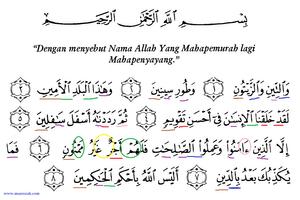 بِسْمِ ٱللَّهِ ٱلرَّحْمَٰنِ ٱلرَّحِيمِ
“Dengan menyebut Nama Allah Yang Mahapemurah lagi
Mahapenyayang.”
وَٱلتِّينِ وَٱلزَّيْتُونِ ١ وَطُورِ سِينِينَ ٢ وَهَٰذَا ٱلْبَلَدِ ٱلْأَمِينِ ٣
لَقَدْ خَلَقْنَا ٱلْإِنسَٰنَ فِىٓ أَحْسَنِ تَقْوِيمٍ ٤ ثُمَّ رَدَدْنَٰهُ أَسْفَلَ سَٰفِلِينَ ٥
إِلَّا ٱلَّذِينَ ءَامَنُوا۟ وَعَمِلُوا۟ ٱلصَّٰلِحَٰتِ فَلَهُمْ أَجْرٌ غَيْرُ مَمْنُونٍ ٦ فَمَا
يُكَذِّبُكَ بَعْدُ بِٱلدِّينِ ٧ أَلَيْسَ ٱللَّهُ بِأَحْكَمِ ٱلْحَٰكِمِينَ ٨